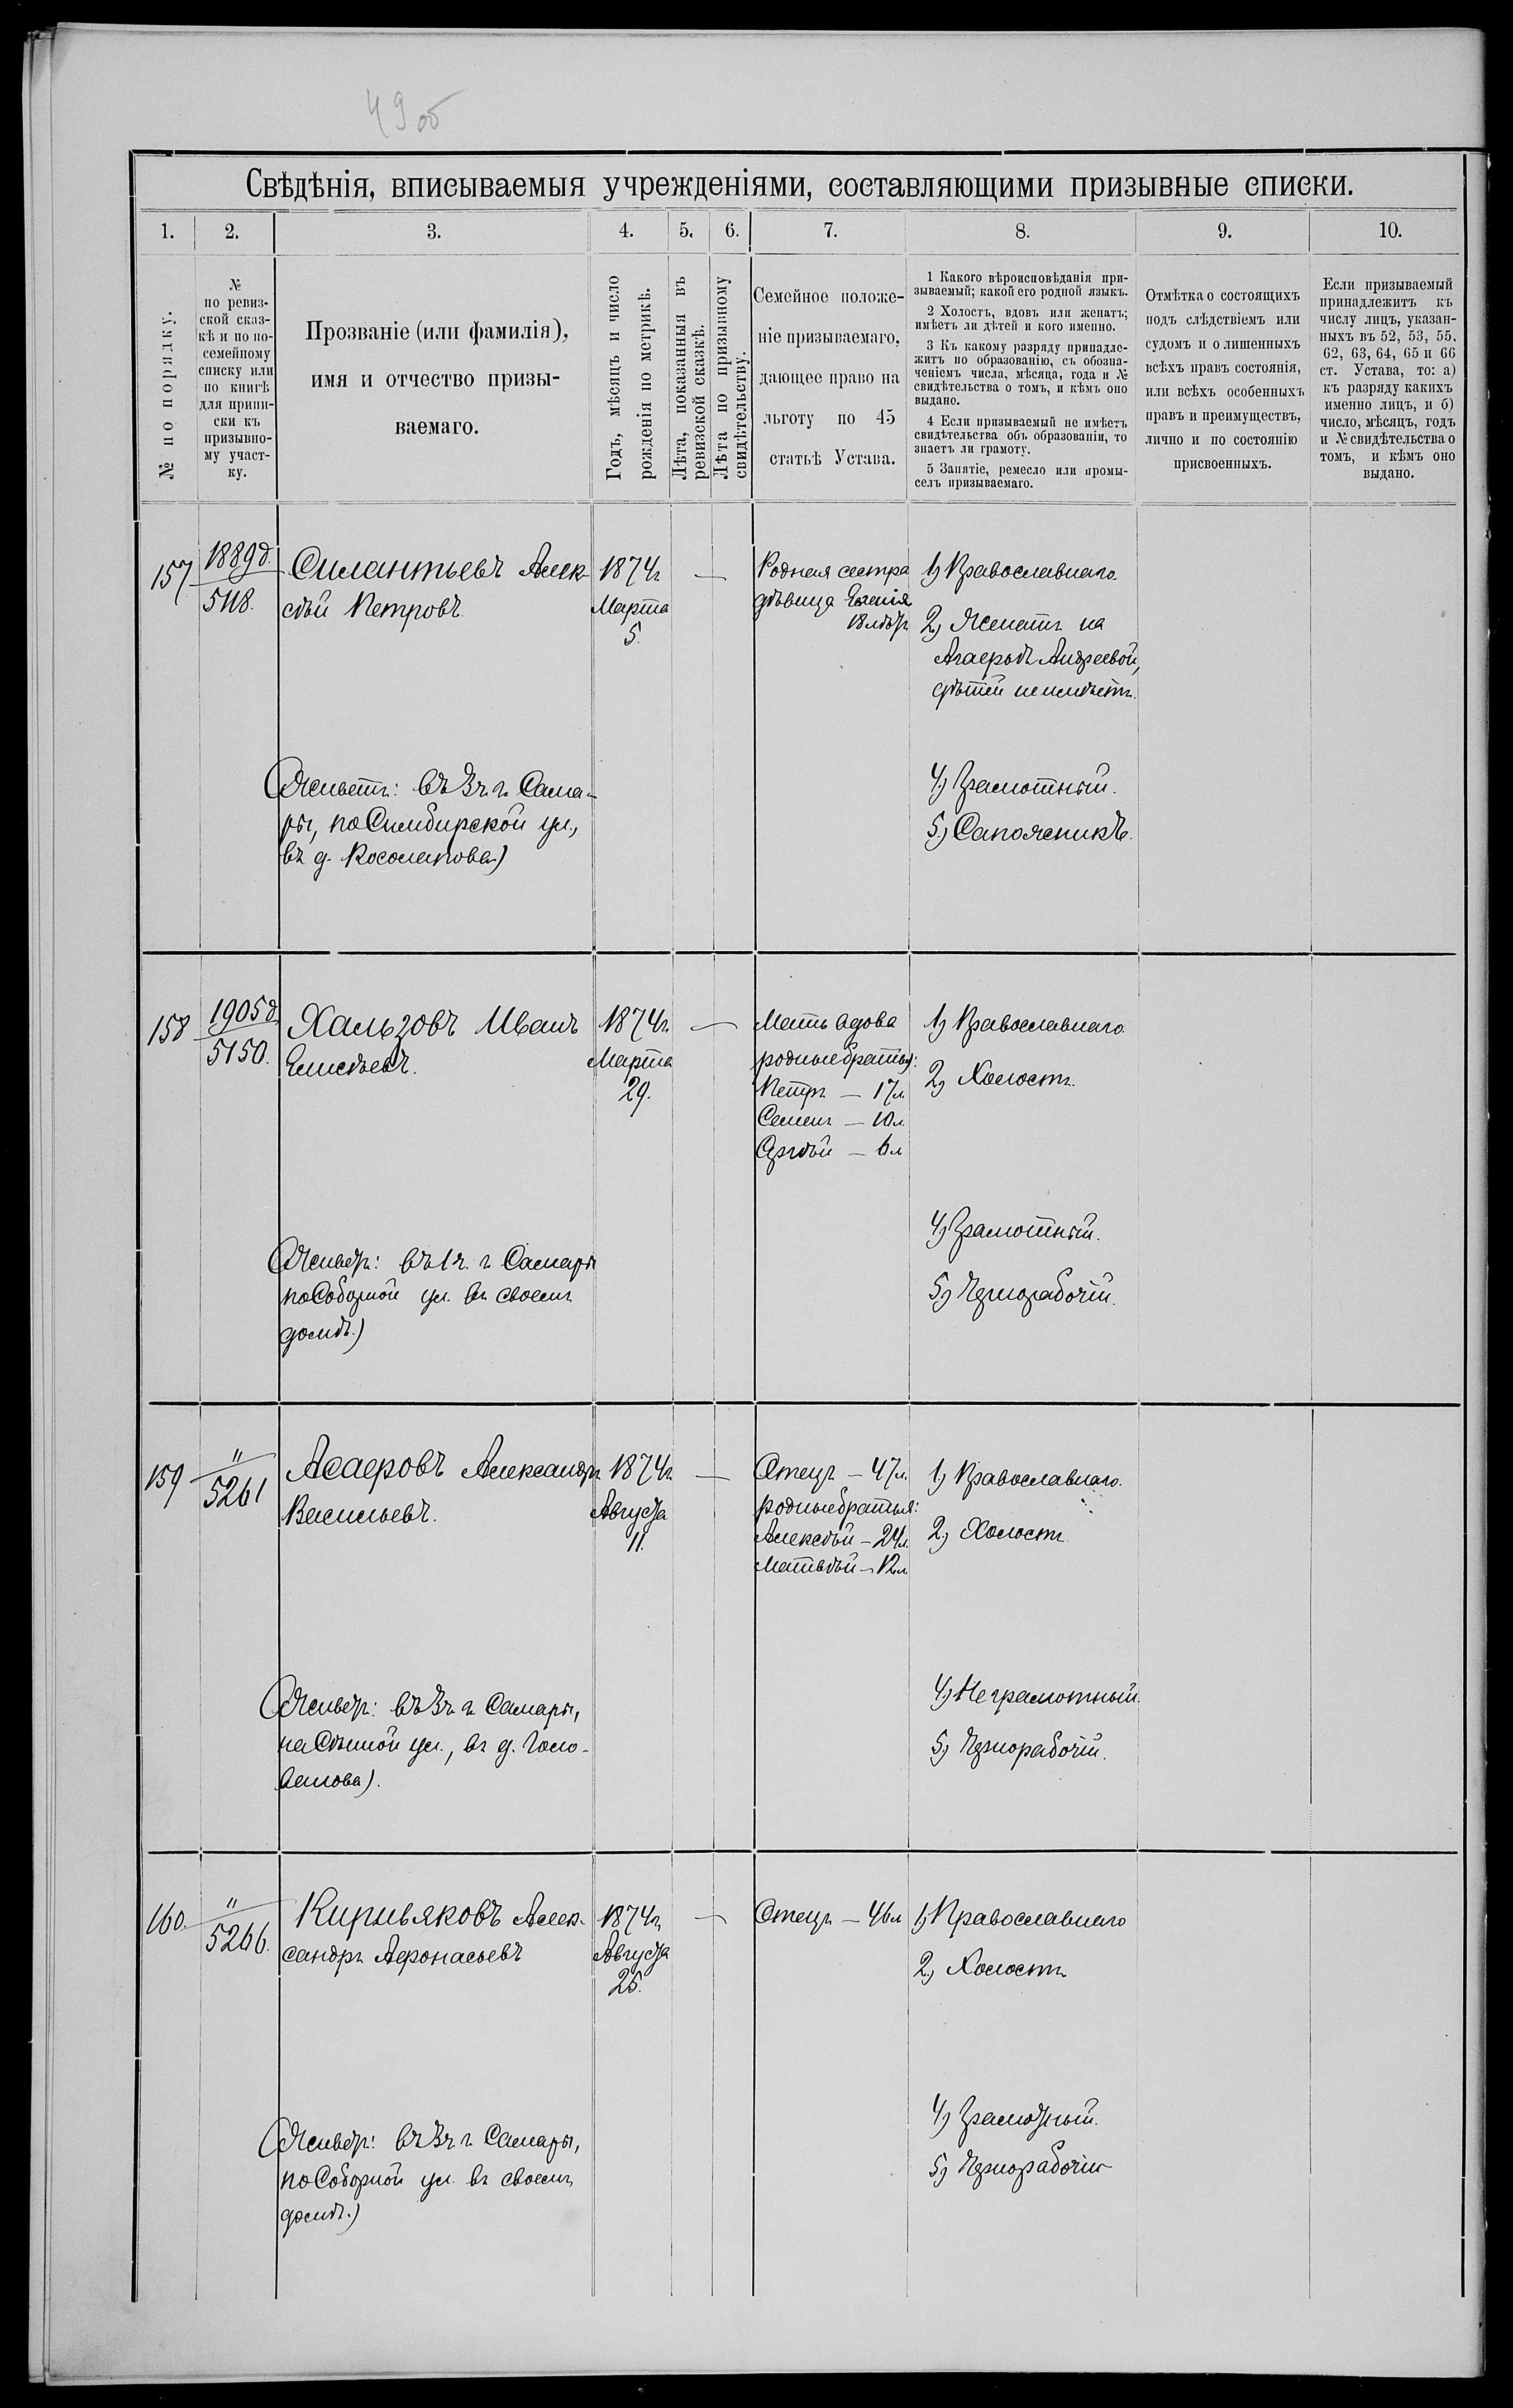 49об
Свѣдѣнія, вписываемыя учрежденіями, составляющими призывные списки.
1. 2. 3. 4. 5. 6. 7. 8. 9. 10.
№ по порядку.
№
по ревиз-
ской сказ-
кѣ и по по-
семейному
списку или
по книгѣ
для припи-
ски къ
призывно-
му участ-
ку.
Прозваніе (или фамилія),
имя и отчество призы-
ваемаго.
Годъ, мѣсяцъ и число
рожденія по метрикѣ.
Лѣта, показанныя въ
ревизской сказкѣ.
Лѣта по призывному
свидѣтельству.
Семейное положе-
ніе призываемаго,
дающее право на
льготу по 45
статьѣ Устава.
1 Какого вѣроисповѣданія при-
зываемый; какой его родной языкъ.
2 Холостъ, вдовъ или женатъ;
имѣетъ ли дѣтей и кого именно.
3 Къ какому разряду принадле-
житъ по образованію, съ обозна-
ченіемъ числа, мѣсяца, года и №
свидѣтельства о томъ, и кѣмъ оно
выдано.
4 Если призываемый не имѣетъ
свидѣтельства объ образованіи, то
знаетъ ли грамоту.
5 Занятіе, ремесло или промы-
селъ призываемаго.
Отмѣтка о состоящихъ
подъ слѣдствіемъ или
судомъ и о лишенныхъ
всѣхъ правъ состоянія,
или всѣхъ особенныхъ
правъ и преимуществъ,
лично и по состоянію
присвоенныхъ.
Если призываемый
принадлежитъ къ
числу лицъ, указан-
ныхъ въ 52, 53, 55,
62, 63, 64, 65 и 66
ст. Устава, то: а)
къ разряду какихъ
именно лицъ, и б)
число, мѣсяцъ, годъ
и № свидѣтельства о
томъ, и кѣмъ оно
выдано.
157
1889д.
5118.
Силантьевъ Алек-
сѣй Петровъ.
(Живетъ: въ 3ч. г. Сама-
ры, по Симбирской ул.,
въ д. Косолапова)
1874г.
Марта
5.
—
Родная сестра
дѣвица
18 лѣтъ
1) Православнаго.
2) Женатъ на
Агаеръѣ Андреевой,
дѣтей не имѣетъ.
4) Грамотный.
5.) Сапожникъ.
158
1905д.
5150.
Хальзовъ Иванъ
Елисѣевъ.
(Живетъ: въ 1ч. г. Самары
по Соборной ул. въ своемъ
домѣ.)
1874г.
Марта
29.
—
Мать вдова
родные братья:
Петръ — 17л.
Семенъ — 10л.
Сергѣй — 6л
1) Православнаго.
2) Холостъ.
4) Грамотный.
5) Чернорабочій.
159
"
5261
Асаеровъ Александръ
Васильевъ.
(Живетъ: въ 3ч. г. Самары,
на Сѣнной ул., въ д. Голо-
ванова).
1874г.
Августа
11.
—
Отецъ — 47л.
родные братья:
Алексѣй — 24л.
Матвѣй — 12л.
1) Православнаго.
2) Холостъ.
4) Неграмотный.
5) Чернорабочій.
160.
"
5266.
Кирильяковъ Алек-
сандръ Аеронасьевъ
(Живетъ: въ 3ч. г. Самары,
по Соборной ул. въ своемъ
домѣ.)
1874г.
Августа
25.
—
Отецъ — 46л
1) Православнаго
2.) Холостъ.
4) Грамотный.
5) Чернорабочій